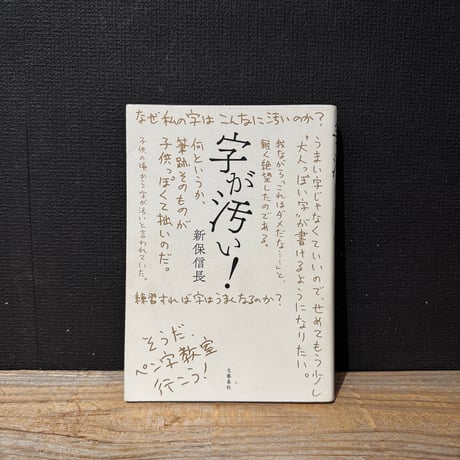 なぜ私の字はこんなに汚いのか？
うまい字じゃなくていいので、せめてもう少し
"大人っぽい字"が書けるようになりたい。
我ながら「これはダメだな……」と、
軽く絶望したのである。
字が汚い！
新保信長
何というか、
筆跡そのものが
子供っぽくて拙いのだ。
子供の頃から字が汚いと言われていた。
練習すれば字はうまくなるのか？
そうだ、
ペン字教室
行こう！
文藝春秋